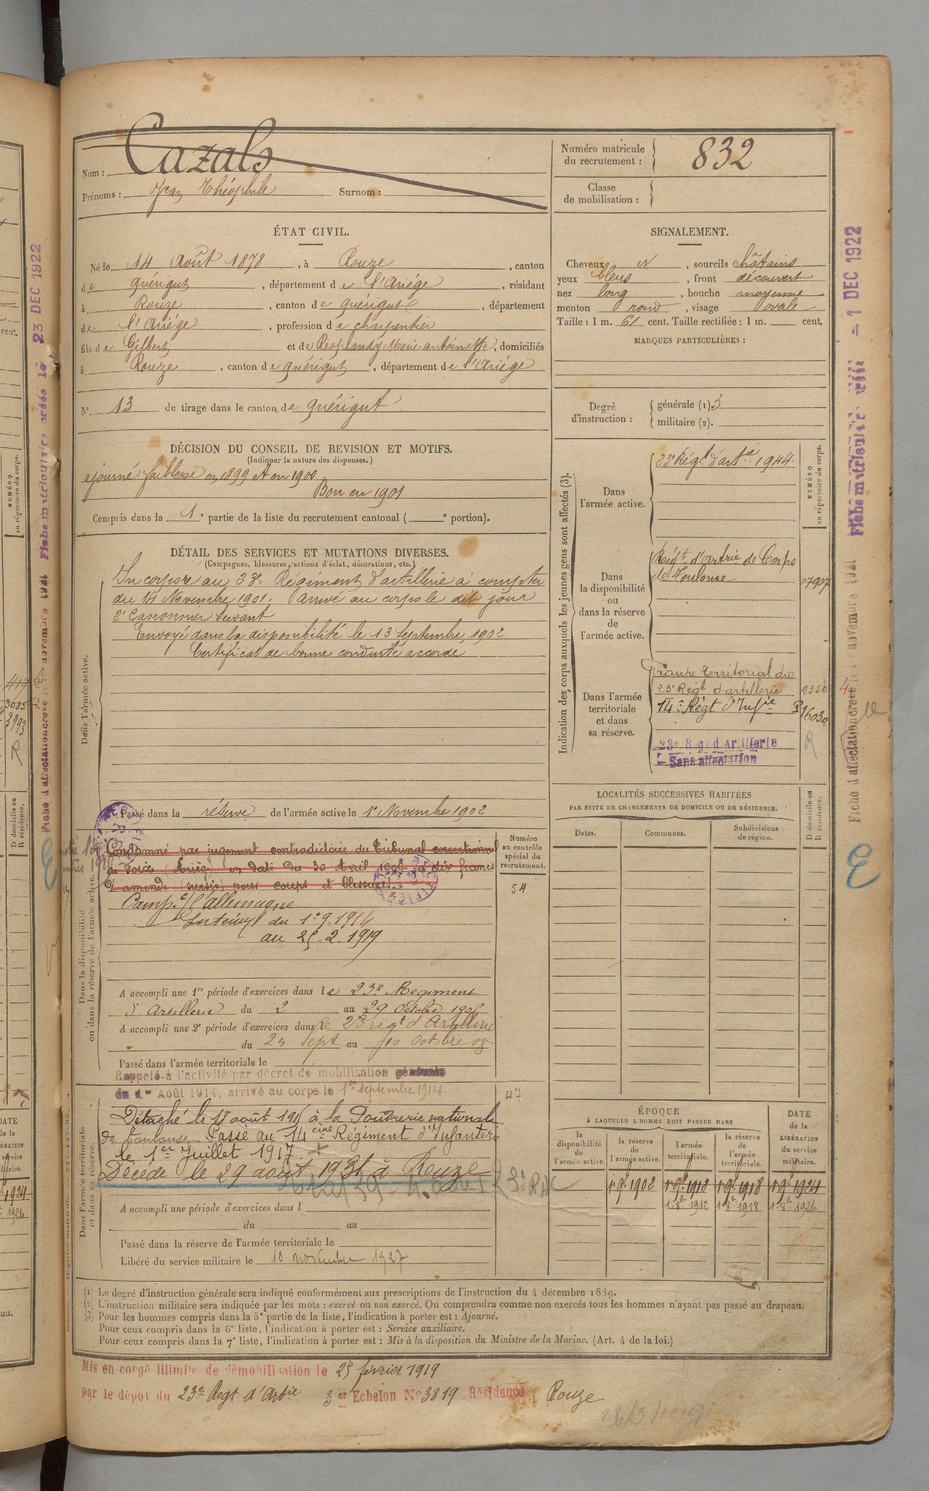 Nom : Cazals
Prénoms : Jean Théophile Surnom :
Numéro matricule du recrutement : 832
Classe de mobilisation :
ÉTAT CIVIL.
Né le 14 Août 1878, à Rouze, canton
de Quérigut, département de l'Ariège, résidant
à Rouze, canton de Quérigut, département
de l'Ariège, profession de charpentier
fils de Gilbert et de Resplandy Marie Antoinette, domiciliés
à Rouze, canton de Quérigut, département de l'Ariège
N° 13 de tirage dans le canton de Quérigut
SIGNALEMENT.
Cheveux N, sourcils châtains
yeux bleus, front découvert
nez long, bouche moyenne
menton rond, visage ovale
Taille : 1 m. 61 cent. Taille rectifiée : 1 m. cent.
MARQUES PARTICULIÈRES :
Degré d'instruction : générale (1) 3
militaire (2).
DÉCISION DU CONSEIL DE REVISION ET MOTIFS.
(Indiquer la nature des dispenses.)
ajourné faiblesse en 1899 et en 1900
Bon en 1901
Compris dans la 1e partie de la liste du recrutement cantonal ( e portion).
DÉTAIL DES SERVICES ET MUTATIONS DIVERSES.
(Campagnes, blessures, actions d'éclat, décorations, etc.)
Dans l'armée active.
Incorporé au 23e Régiment d'artillerie à compter
du 14 Novembre 1901. Arrivé au corps le dit jour
2e Canonnier servant
Envoyé dans la disponibilité le 13 Septembre 1902
Certificat de bonne conduite accordé
Passé dans la réserve de l'armée active le 1er Novembre 1902
Dans la disponibilité ou dans la réserve de l'armée active.
Condamné par jugement contradictoire du Tribunal correctionnel
de Foix (Ariège) en date du 30 Avril 1906 à dix francs
d'amende (sursis) pour coups et blessures.
Campe c/ l'allemagne
Intérieur du 1.9.1914
au 25.2.1919
Numéro au contrôle spécial du recrutement.
54
A accompli une 1re période d'exercices dans le 23e Régiment
d'Artillerie du 2 au 29 Octobre
A accompli une 2e période d'exercices dans le 23e régt d'Artillerie
du 24 Sept au 10 Octobre 08
Passé dans l'armée territoriale le
Rappelé à l'activité par décret de mobilisation générale
du 1er Août 1914, arrivé au corps le 1er septembre 1914.
47
Dans l'armée territoriale et dans sa réserve.
Détaché le 18 août à la Poudrerie nationale
de Toulouse. Passé au 14eme Régiment d'Infanterie
le 1er Juillet 1917.
Décédé le 29 août 1931 à Rouze
A accompli une période d'exercices dans l
du au
Passé dans la réserve de l'armée territoriale le
Libéré du service militaire le 10 novembre 1927
Indication des corps auxquels les jeunes gens sont affectés (3).
NUMÉRO au répertoire du corps.
Dans l'armée active.
23e Régt d'artie 1944.
Dans la disponibilité ou dans la réserve de l'armée active.
Régt d'artrie de Corps
de Toulouse
Dans l'armée territoriale et dans sa réserve.
Groupe territorial du
23e Régt d'artillerie
14e Régt d'Infie
16030
23e Régt d'Artillerie
Sans affectation
LOCALITÉS SUCCESSIVES HABITÉES
PAR SUITE DE CHANGEMENTS DE DOMICILE OU DE RÉSIDENCE.
D domicile ou R résidence.
Dates. Communes. Subdivisions de région.
ÉPOQUE
À LAQUELLE L'HOMME DOIT PASSER DANS
la disponibilité de l'armée active. la réserve de l'armée active. l'armée territoriale. la réserve de l'armée territoriale.
DATE de la LIBÉRATION du service militaire.
1 9bre 1902 1 9bre 1912 1 9bre 1918 1 9bre 1924
(1) Le degré d'instruction générale sera indiqué conformément aux prescriptions de l'instruction du 4 décembre 1889.
(2) L'instruction militaire sera indiquée par les mots : exercé ou non exercé. On comprendra comme non exercés tous les hommes n'ayant pas passé au drapeau.
(3) Pour les hommes compris dans la 5e partie de la liste, l'indication à porter est : Ajourné.
Pour ceux compris dans la 6e liste, l'indication à porter est : Service auxiliaire.
Pour ceux compris dans la 7e liste, l'indication à porter est : Mis à la disposition du Ministre de la Marine. (Art. 4 de la loi.)
Mis en congé illimité de démobilisation le 25 février 1919
par le dépôt du 23e Régt d'Artie 3e Échelon N° 3819 Résidence : Rouze
23 DEC 1922
1 DEC 1922
E